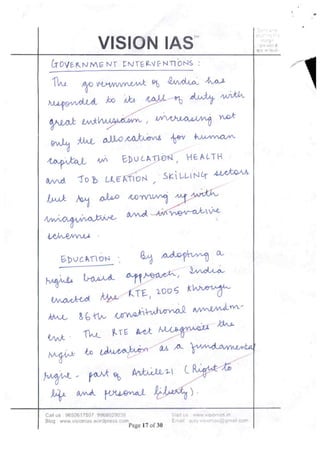 VISION IAS™
GOVERNMENT INTERVENTIONS :
The government of India has
responded to its call of duty with
great enthusiasm, increasing not
only the allocations for human
capital in EDUCATION, HEALTH
and JOB CREATION, SKILLING sectors
but by also coming up with
imaginative and innovative
schemes.
EDUCATION : By adopting a
rights based approach, India
enacted the RTE, 2005 through
the 86th constitutional amendm-
ent. The RTE Act recognises the
right to education as a fundamental
right - part of Article 21 (Right to
life and personal liberty).
Call us : 9650617807, 9968029039
Visit us : www.visionias.in
Blog : www.visionias.wordpress.com
Page 17 of 30